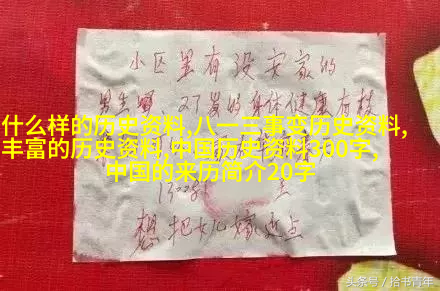 小区里有没安家的
男生嘛 27岁的身体健康有技
什么样的历史资料,八一三事变历史资料,
丰富的历史资料,中国历史资料300字,
中国的来历简介20字
想把女儿嫁近点
头条号／拾书青年